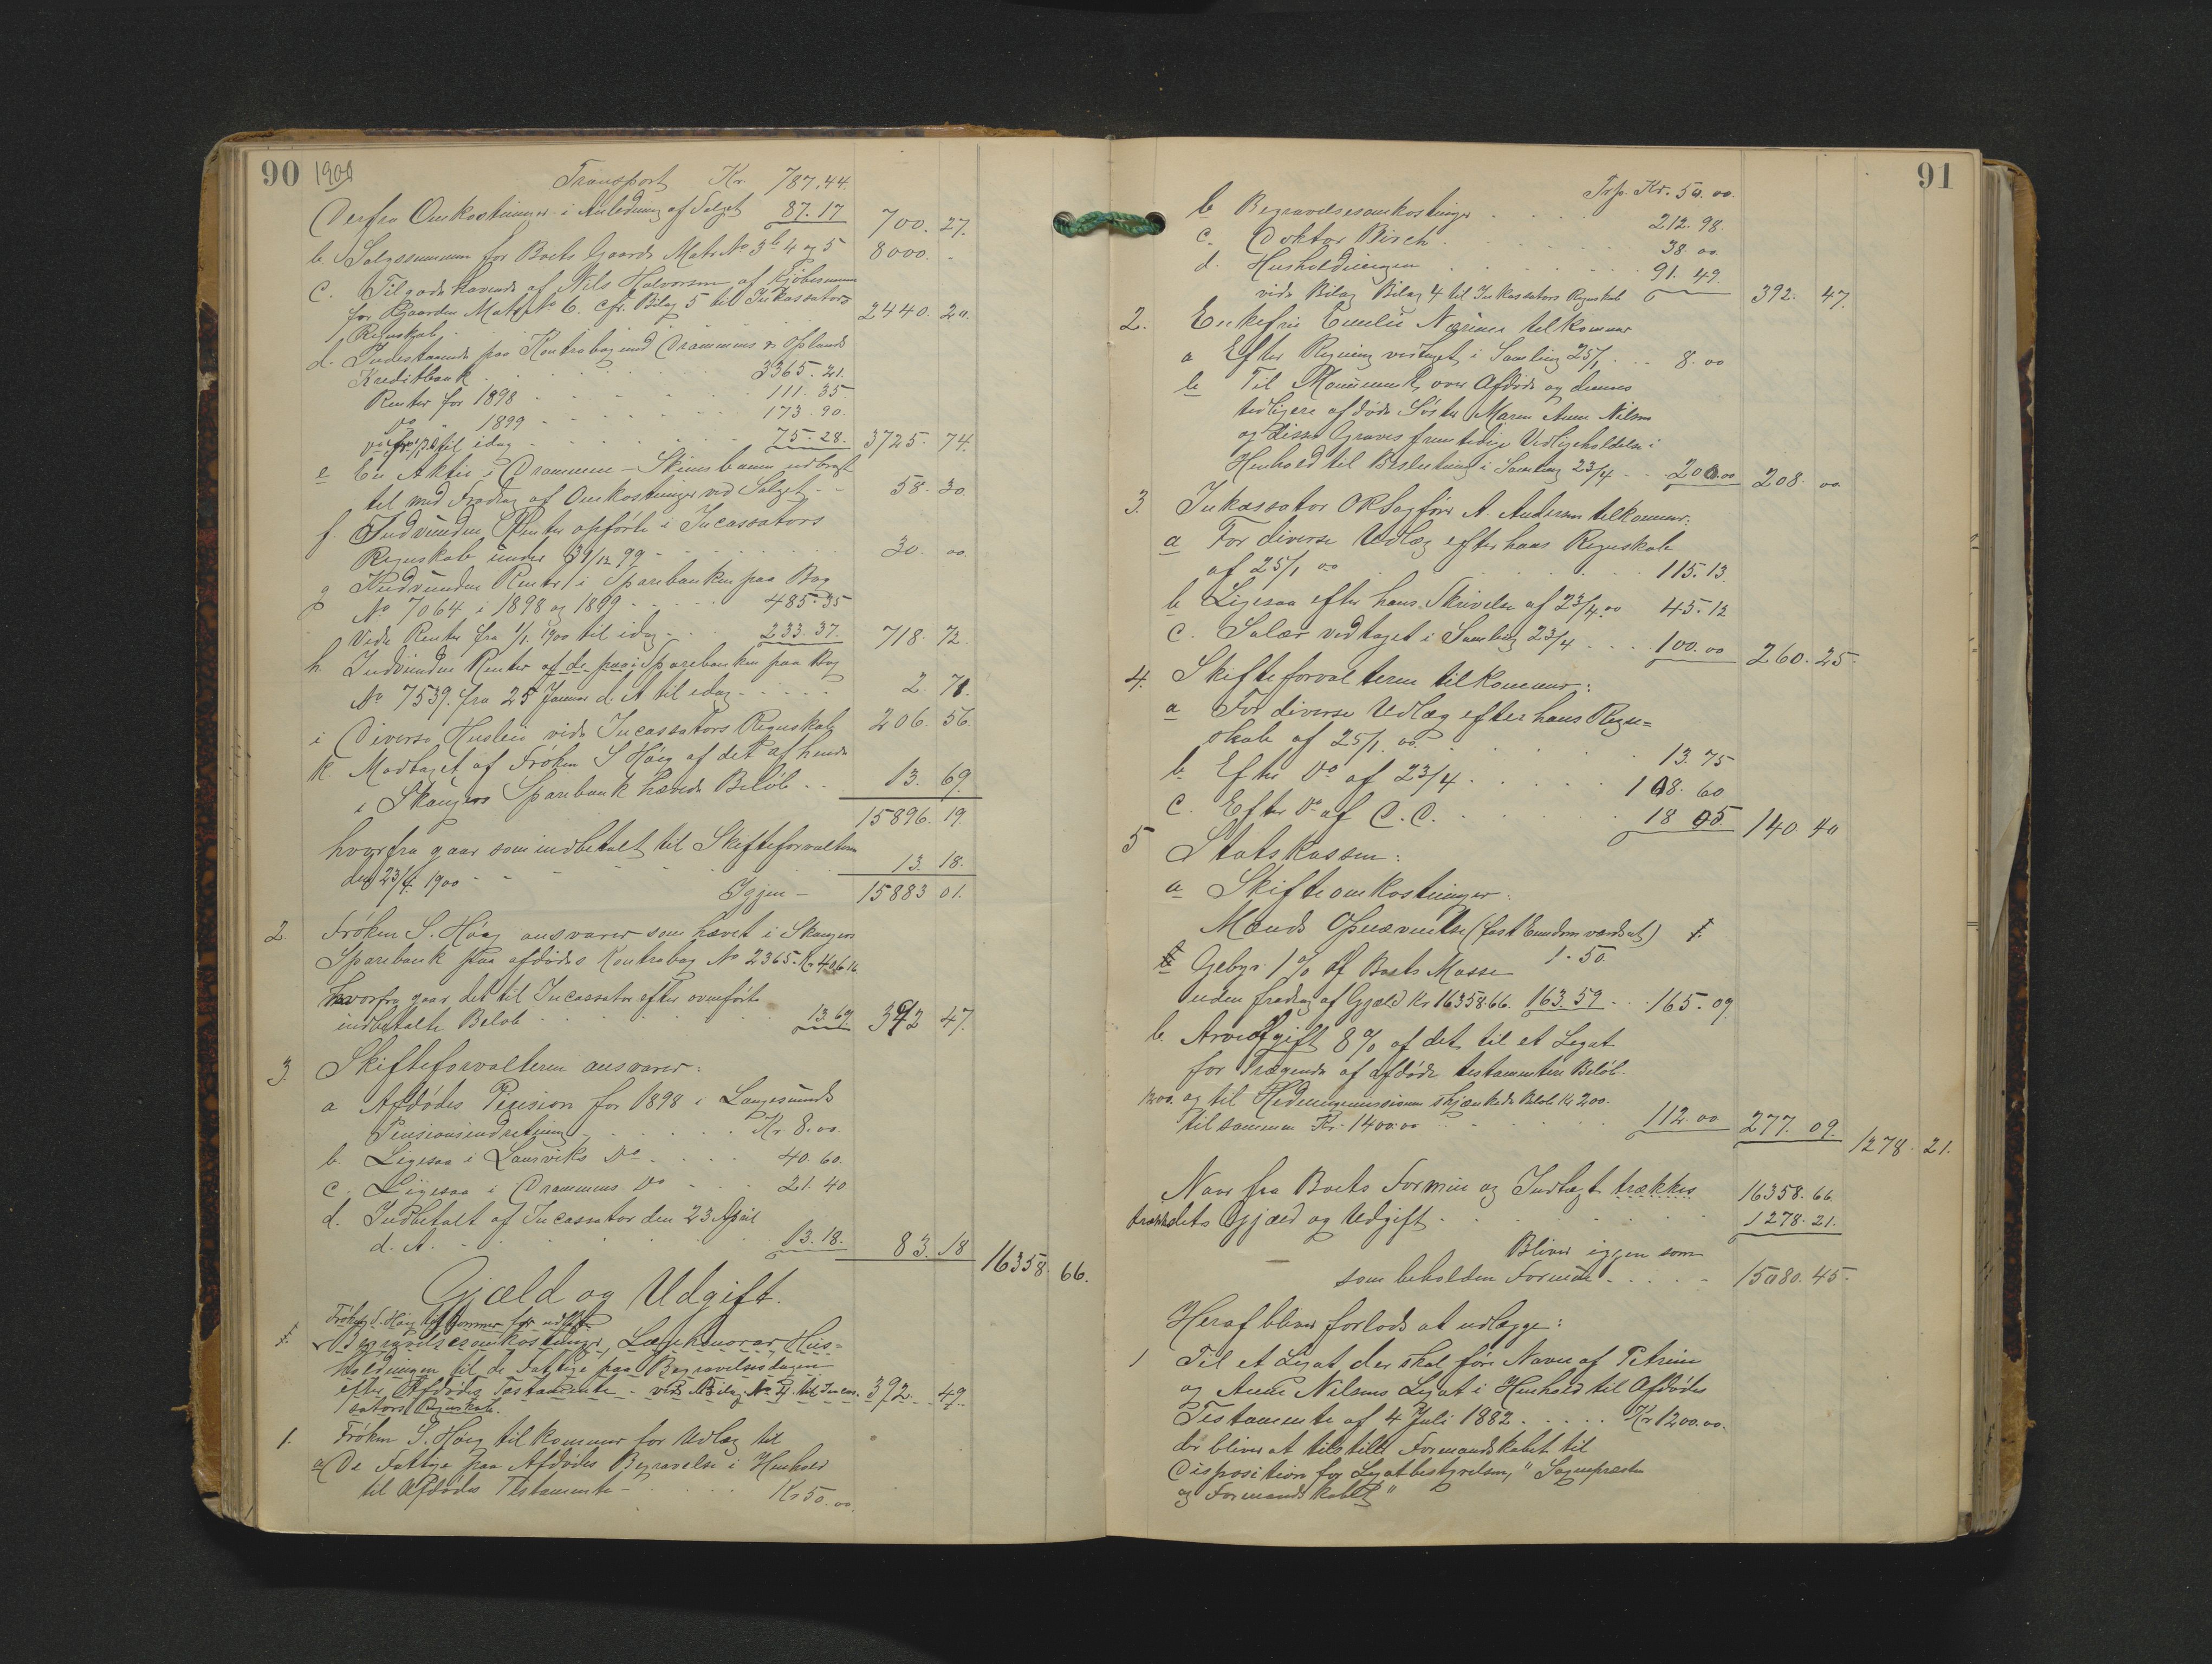 90 1900
Transport Kr. 787.44.
Derfra Omkostninger i Anledning af Salget 87.17 700. 27.
b Salgssummen for Boets Gaard Matr No 3b 4 og 5 8000. -
c. Tilgodehavende af Nils Halvorsen af Kjøbesummen
for Gaarden Matr. No 6. cfr. Bilag 5 til Inkassators 2440. 20.
Regnskab
d. Indestaaende paa Kontrabog med Drammens & Oplands
Kreditbank 3365. 21.
Renter for 1898 111. 35
Do " 1899 173. 90.
til idag 75. 28. 3725. 74.
e En Aktie i Drammen-Skiensbanen udbragt
til med Fradrag af Omkostninger ved Salget 58. 30.
f. Indvundne Renter opførte i Incassators
Regnskab under 31/12 99 30. 00.
g Indvundne Renter i Sparebanken paa Bog
No 7064 i 1898 og 1899 485.35
Vide Renter fra 1/1. 1900 til idag 233. 37. 718. 72.
h Indvundne Renter af de paa i Sparebanken paa Bog
No 7539. fra 25 Januar d. A til idag 2. 71.
i Diverse Husleie vide Incassators Regnskab 206. 56.
k Modtaget af Frøken S Høeg af det af hende
i Skanges Sparebank hævede Beløb 13. 69.
15896. 19.
hvorfra gaar som indbetalt til Skifteforvalteren
den 23/4. 1900 13. 18.
Igjen - 15883 01.
2. Frøken S. Høeg ansvarer som hævet i Skanges
Sparebank paa afdødes Kontrabog No 2365. Kr 406 16
hvorfra gaar det til Incassator efter ovenførte
indbetalte Beløb 13.69 392 47.
3. Skifteforvalteren ansvarer:
a Afdødes Pension for 1898 i Langesunds
Pensionsindretning Kr. 8.00.
b. Ligesaa i Laurviks Do 40. 60.
c. Ligesaa i Drammens Do 21. 40
d. Indbetalt af Incassator den 23 April
d. A. 13. 18. 83. 18 16358. 66.
Gjæld og Udgift.
Frøken S. Høeg tilkommer for udlagt
1. Begravelsesomkostninger, Lægehonorar, Hus=
holdningen til de Fattige paa Begravelsesdagen
efter Afdødes Testamente - vide Bilag No 4 til Incas- 392. 49.
sators Regnskab.
1. Frøken S. Høeg tilkommer for Udlæg til
a De Fattige paa Afdødes Begravelse i Henhold
til Afdødes Testamente - Kr 50. 00.
91
Trsp. Kr. 50. 00.
b Begravelsesomkostninger 212. 98.
c. Doktor Birch 38. 00.
d. Husholdningen 91. 49.
vide Bilag Bilag 4 til Inkassators Regnskab 392. 47.
2. Enkefru Emelie Nærum tilkommer
a Efter Regning vedtaget i Samling 25/1 8. 00
b Til Monument over Afdøde og dennes
tidligere afdøde Søster Maren Anne Nilsen
og disses Graves fremtidige Vedligeholdelse i
Henhold til Beslutning i Samling 23/4 - 200.00 208. 00.
3. Inkassator ORSagfører A. Andersen tilkommer:
a For diverse Udlæg efter hans Regnskab
af 25/1 00 115. 13.
b Ligesaa efter hans Skrivelse af 23/4.00 45. 12
c. Salær vedtaget i Samling 23/4 100. 00 260. 25.
4. Skifteforvalteren tilkommer:
a For diverse Udlæg efter hans Regn=
skab af 25/1. 00. 13. 75
b. Efter Do af 23/4 108. 60
c. Efter Do af C.C. 18 05. 140. 40
5 Statskassen:
a Skifteomkostninger:
Mænds Opnævnelse (fast Eiendom værdsat) 1.
1. 50.
Gebyr 1 % af Boets Masse
uden fradrag af Gjæld Kr 16358.66. 163. 59 165. 09
b. Arveafgift 8 % af det til et Legat
for Trængende af afdøde testamentere Beløb
1200. og til Hedningemissionen skjænkede Beløb Kr 200.
tilsammen Kr. 1400.00 112. 00 277. 09. 1278. 21.
Naar fra Boets Formue og Indtægt trækkes 16358. 66.
trækkes dets Gjæld og Udgift 1278. 21.
Bliver igjen som
som beholden Formue 15080. 45.
Heraf bliver forlods at udlægge:
1 Til et Legat der skal føre Navn af Petrine
og Anne Nilsens Legat i Henhold til Afdødes
Testamente af 4 Juli 1882 Kr 1200.00.
der bliver at tilstille Formandskabet til
Disposition for Legatbestyrelsen, "Sognepræsten
og Formandskabet"